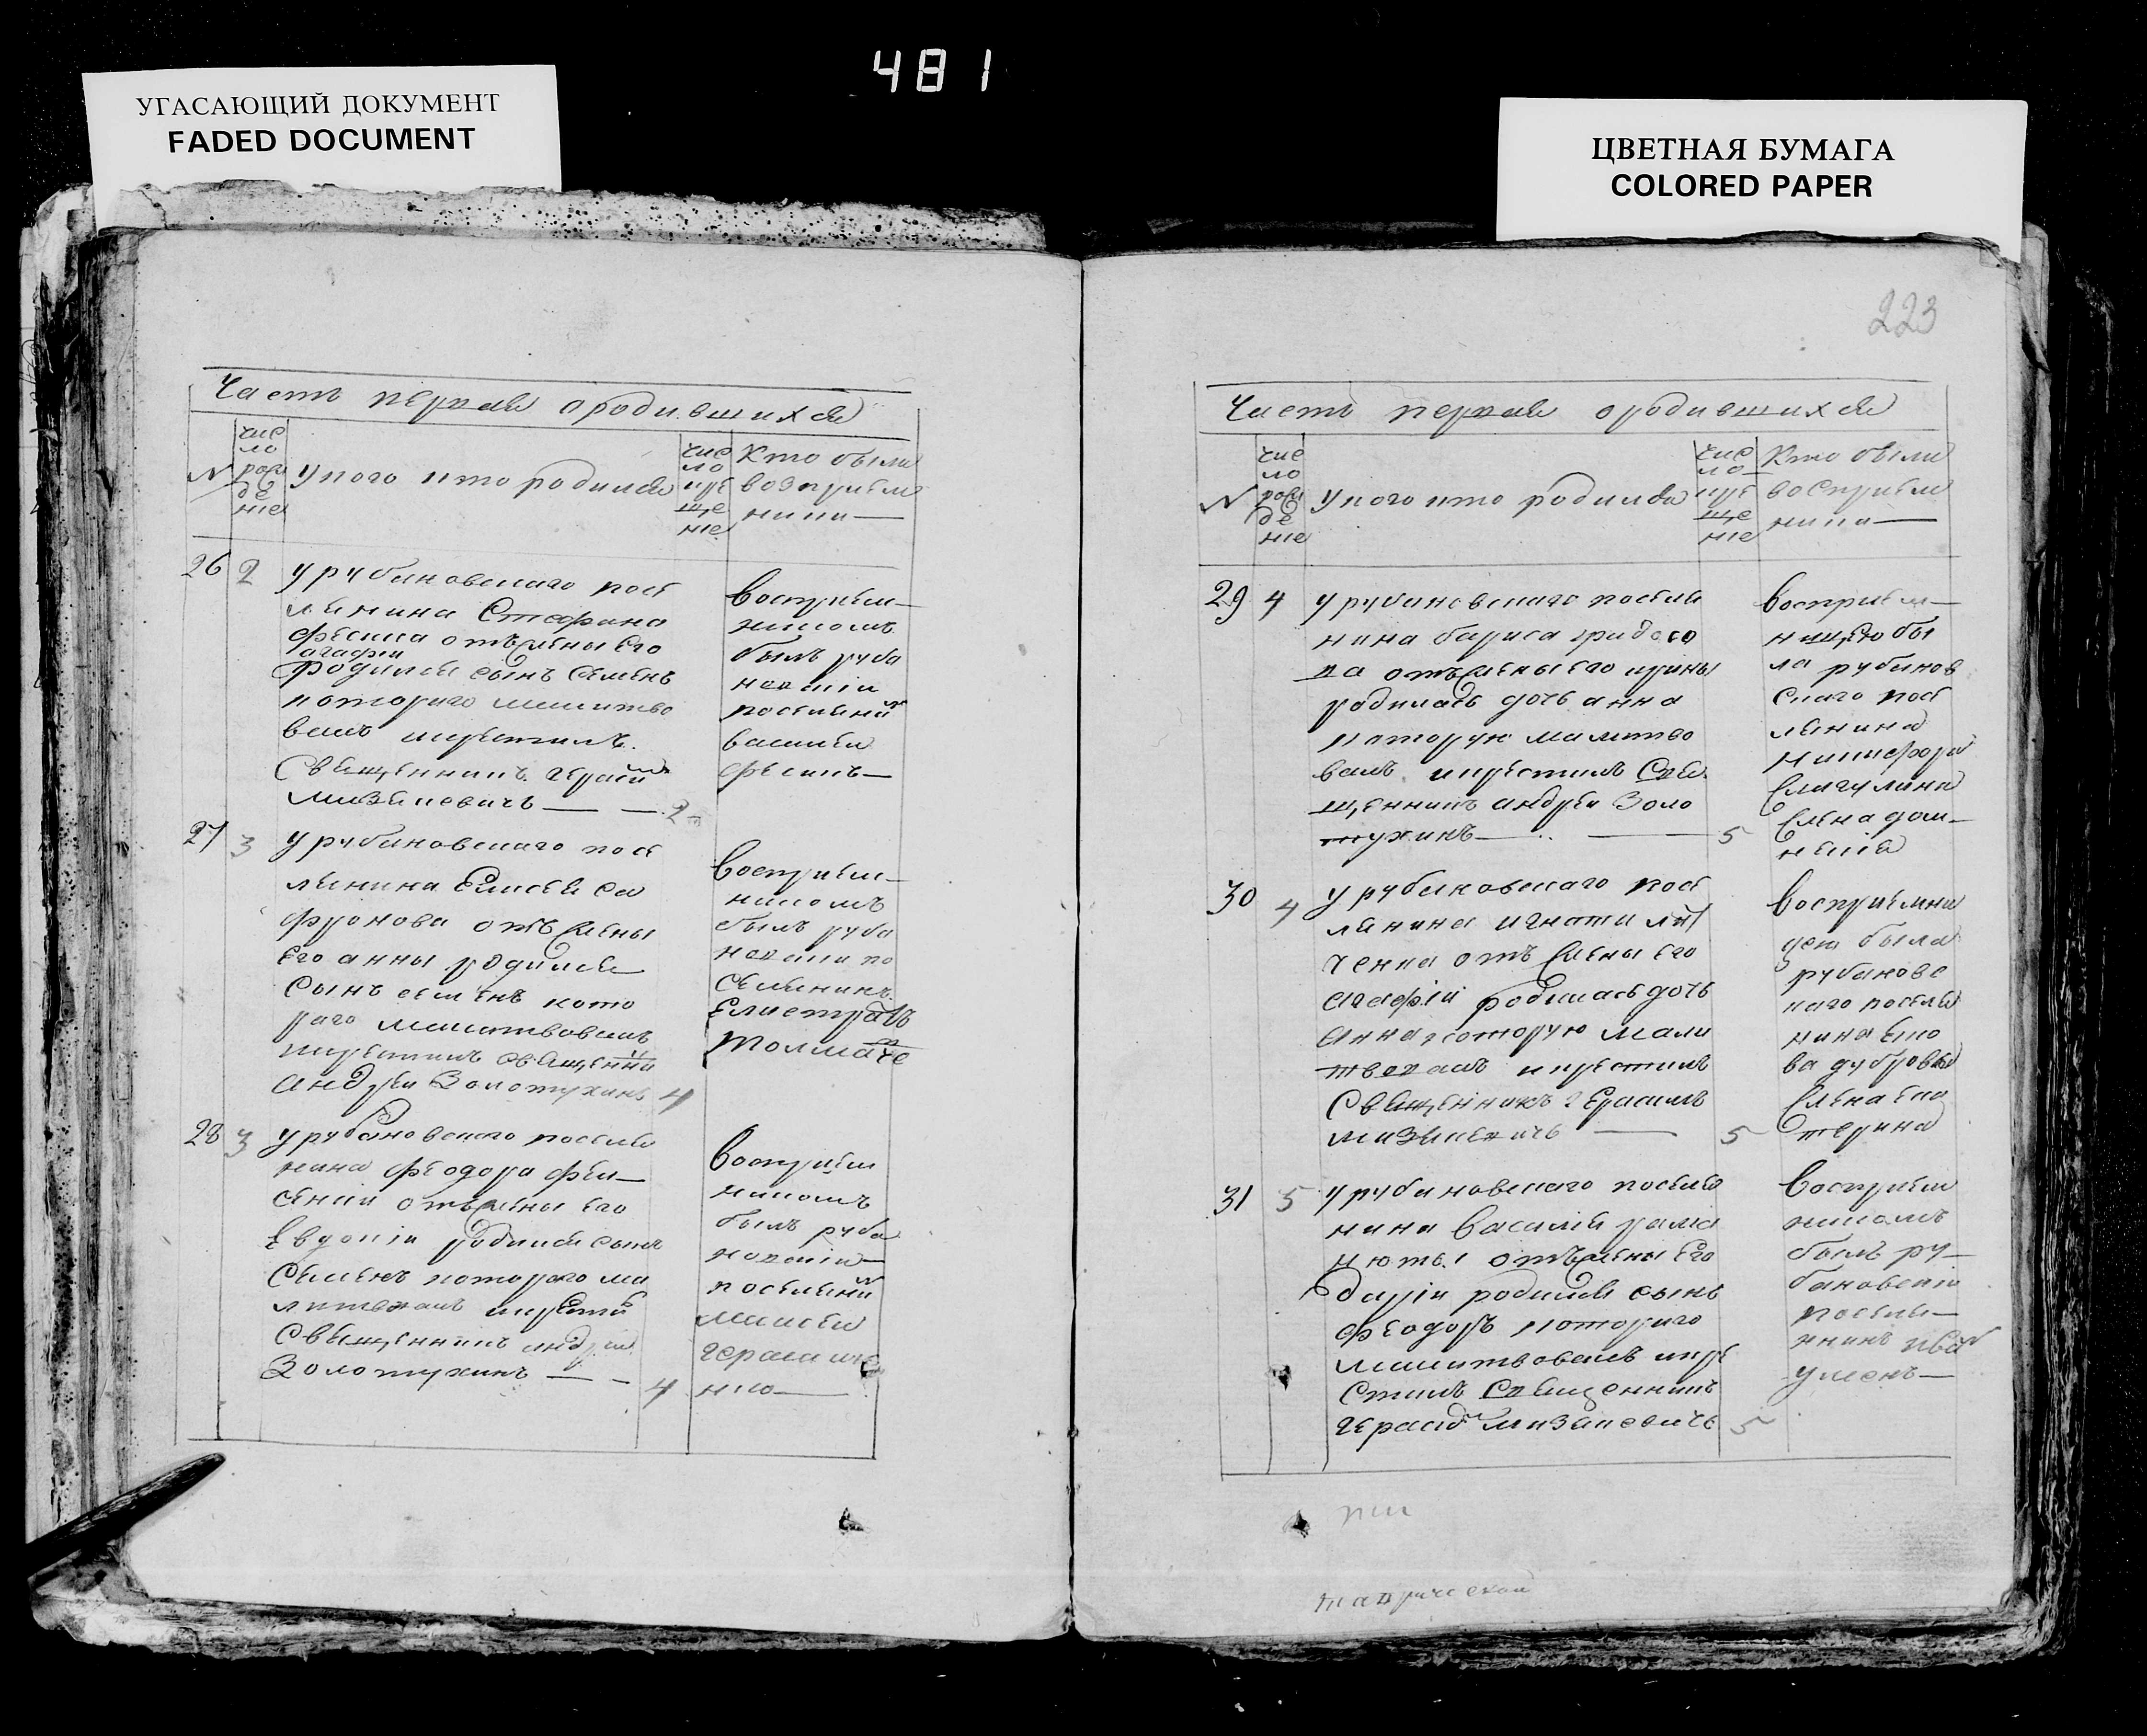 481
УГАСАЮЩИЙ ДОКУМЕНТ
FADED DOCUMENT
ЦВЕТНАЯ БУМАГА
COLORED PAPER
Часть первая о родившихся
N
чис
ло
рож
де
ние
у кого кто родился
чис
ло
кре
ще
ние
Кто были
восприем
ники
26 2
у рубановскаго посе
лянина Стефана
фесика отъ жены его
агафии
родился сынъ Семенъ
котораго молитво
валъ и крестилъ
Священникъ Герасим
Мизкевичъ 2
восприем
никомъ
былъ руба
новский
поселянин
василий
фесикъ
27 3
у рубановскаго посе
лянина Елисея са
фронова отъ жены
его анны родился
сынъ семенъ кото
раго молитвовалъ
и крестилъ священни
андрей Золотухинъ 4
восприем
никомъ
былъ руба
новский по
селянинъ
Елистратъ
толмаче
28 3
у рубановскаго поселя
нина феодора
отъ жены его
Евдокии родился сынъ
Семенъ котораго мо
литвовалъ и крестил
Священникъ андрей
Золотухинъ 4
восприем
никомъ
былъ руба
новский
поселянин
моисей
герасиме
нко
223
Часть первая о родившихся
N
чис
ло
рож
де
ние
у кого кто родился
чис
ло
кре
ще
ние
Кто были
восприем
ники
29 4
у рубановскаго поселя
нина бориса
отъ жены его ирины
родилась дочь анна
которую молитво
валъ и крестилъ Свя
щенникъ андрей Золо
тухинъ 5
восприем
ницею бы
ла рубанов
скаго посе
лянина
никифора
Елена дом
30 4
у рубановскаго посе
лянина игнатия
ченка отъ жены его
агафии родилась дочь
анна которую моли
твовалъ и крестилъ
Священникъ Герасимъ
5
восприемни
цею была
рубановс
каго поселя
нина
жена ека
терина
31 5
у рубановскаго поселя
нина василия
отъ жены его
дарии родился сынъ
феодоръ котораго
молитвовалъ и кре
стилъ Священникъ
Герасим Мизкевичъ 5
восприем
никомъ
былъ ру
бановский
поселя
нинъ иван
таврической